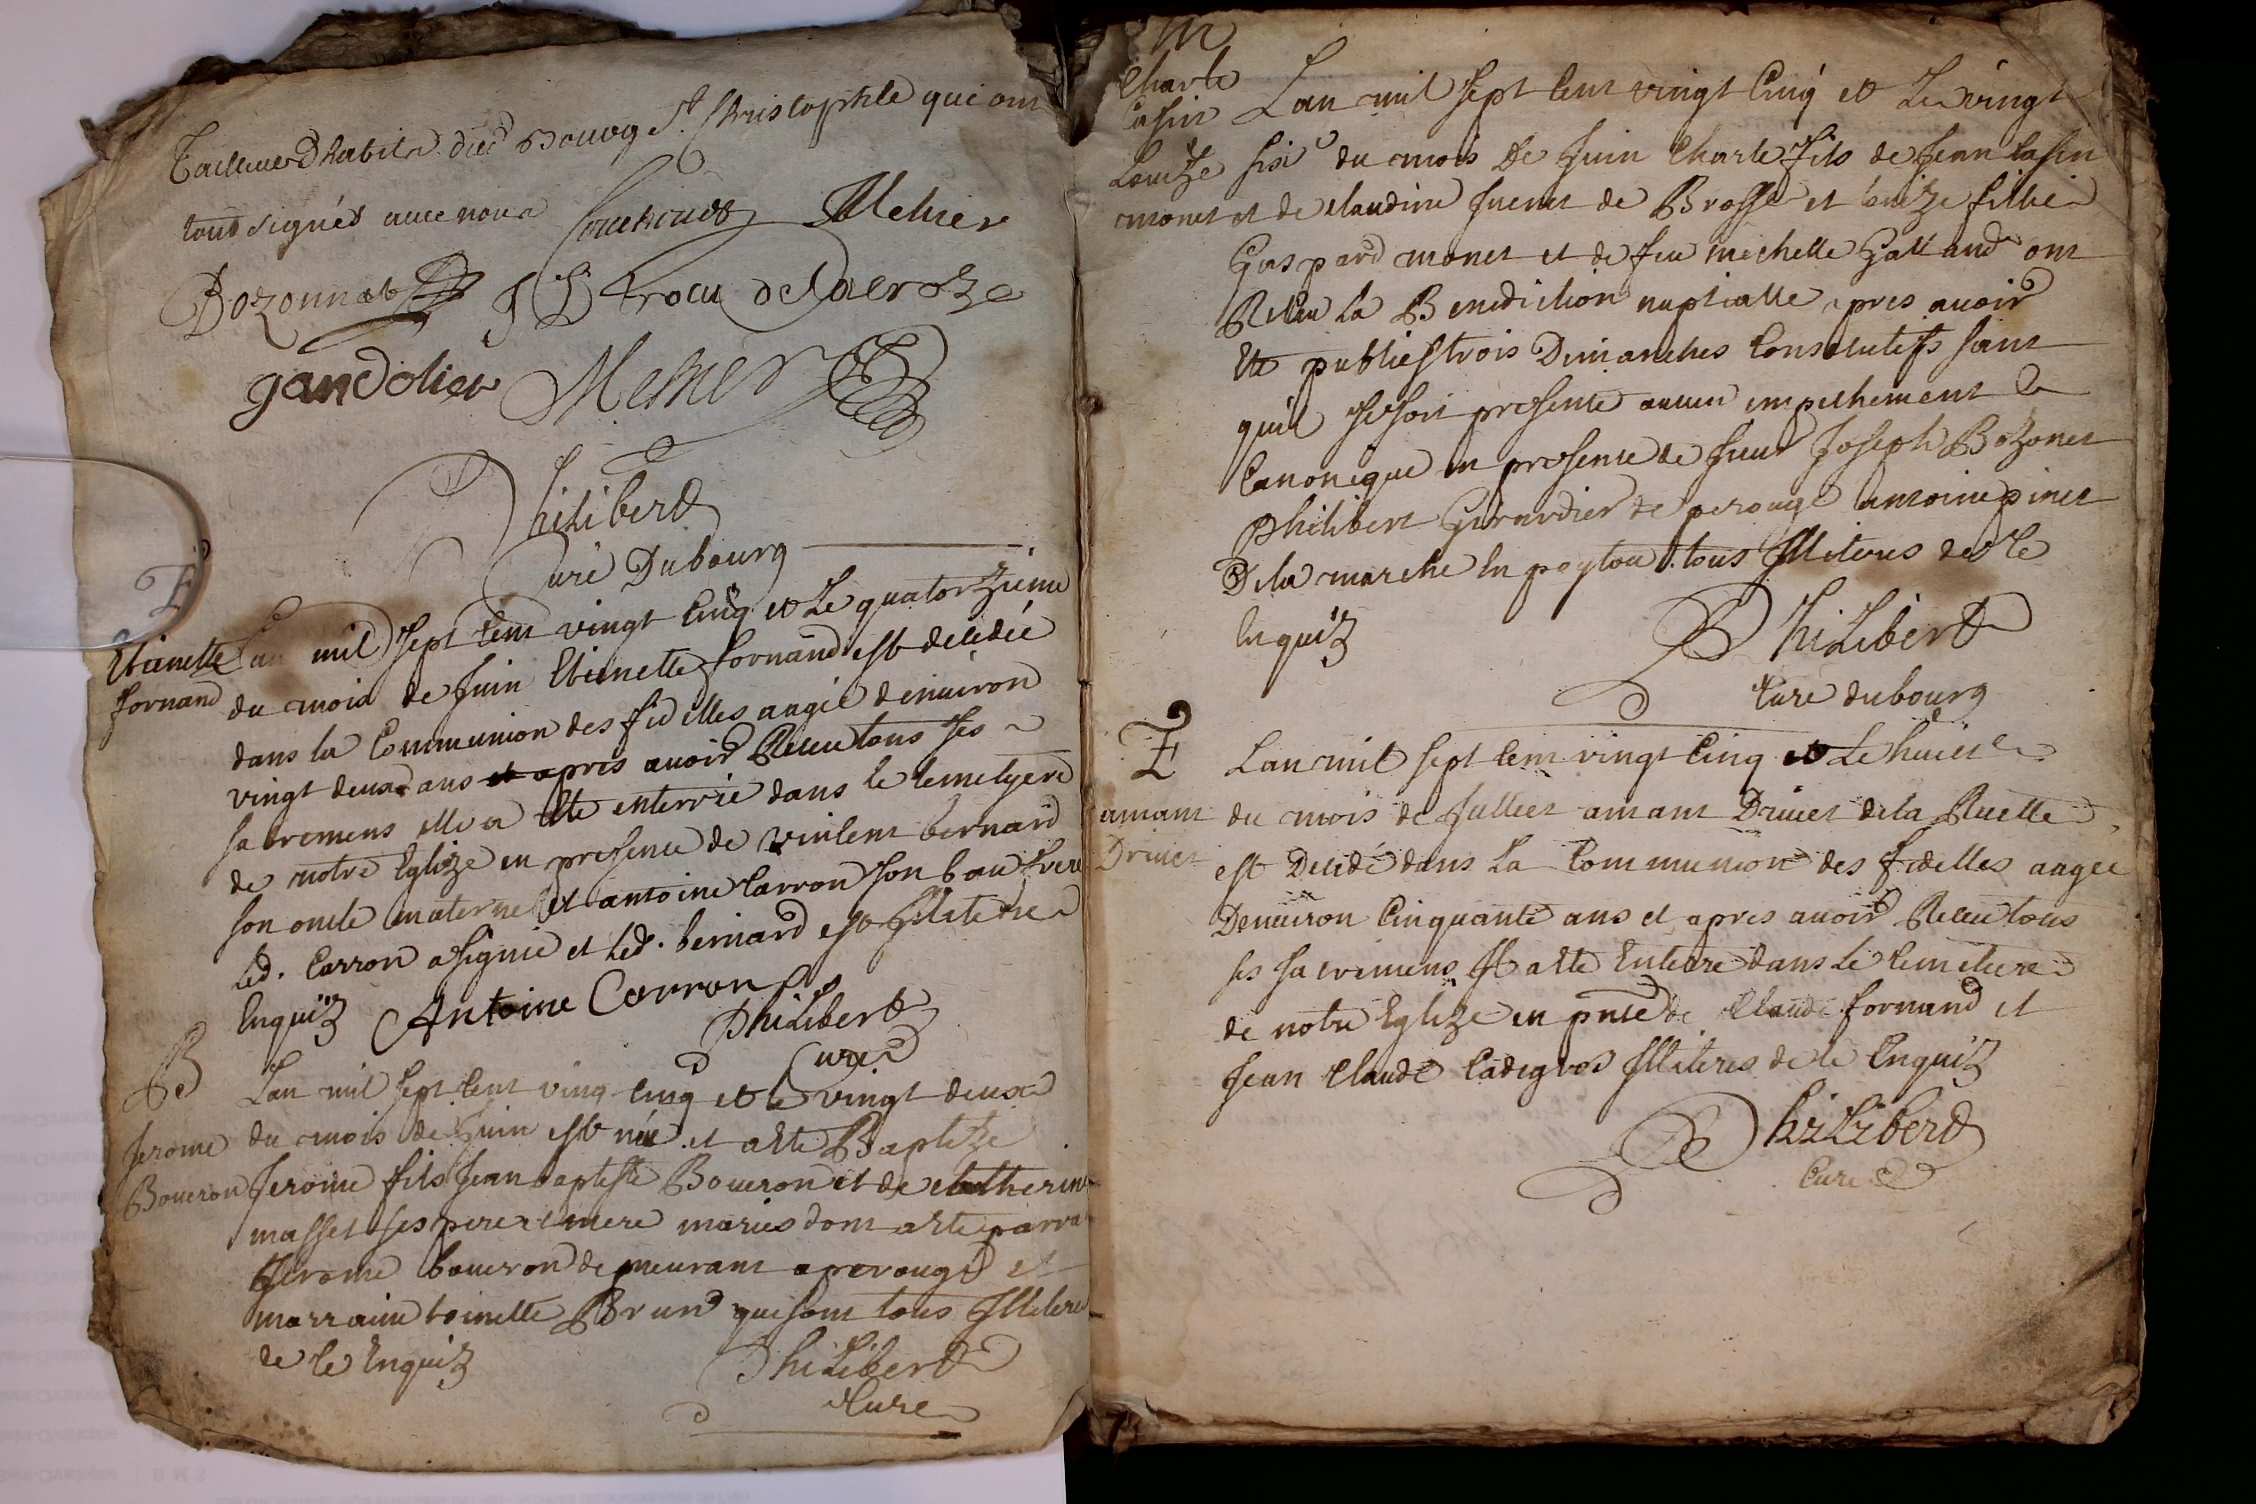 Tailleur D habit dud Bourg St Christophle qui ont
tous signés avec nous Mehier
Bozonnat J B trocu de la croze
gandolier Mehier
Philiberd
Curé Dubourg
E
Etienette Lan mil sept cent vingt Cinq et Le quatorzieme
fornand du mois de Juin Etienette fornand est decedée
dans la Communion des fidelles aagée denviron
vingt deux ans et apres avoir Receu tous ses
sacremens elle a ete enterrée dans le cemetyere
de notre Eglize en presence de vincent bernard
son oncle maternel et antoine Carron son bau frere
led. Carron a signé et led. bernard est Illitere
Enquiz Antoine Carron Philiberd
Curé
B Lan mil sept cent ving cinq et le vingt deux
Jerome du mois de Juin est née et a ete Baptize
Boueron Jerome fils Jean baptiste Boueron et de catherine
masset ses pere et mere maries dont a ete parra
Jerome boueron demeurant a perouge et
marraine toinette Brun qui sont tous Illitere
de ce Enquiz Philiberd
Cure
M
Charle
Casin Lan mil sept cent vingt Cinq et Le vingt
Louize sixe du mois De Juin Charle fils de Jean Casin
monet et de claudine Juenet de Brosse et Louize fille
Gaspard monet et de feu michelle Galland ont
Receu la Benediction nuptialle apres avoir
Ete publies trois Dimanches Consecutifs sans
quil se soit presente aucun empechement
Canonique en presence de sieur Joseph Bozonet
Philibert Girardier de perouge antoine pinet
De la marche en poytou tous Illiteres de ce
Enquiz Philiberd
Cure dubourg
E Lan mil sept cent vingt Cinq et Le huict
amant du mois de Jullet amant Drivet de la Ruelle
Drivet est Decedé dans La Communion des fidelles aagée
Denviron Cinquante ans et apres avoir Receu tous
ses sacremens Il a ete Enterre dans Le Cemetiere
de notre Eglize en pnce de Claude fornand et
Jean Claude Cadegros Illiteres de ce Enquiz
Philiberd
Cure